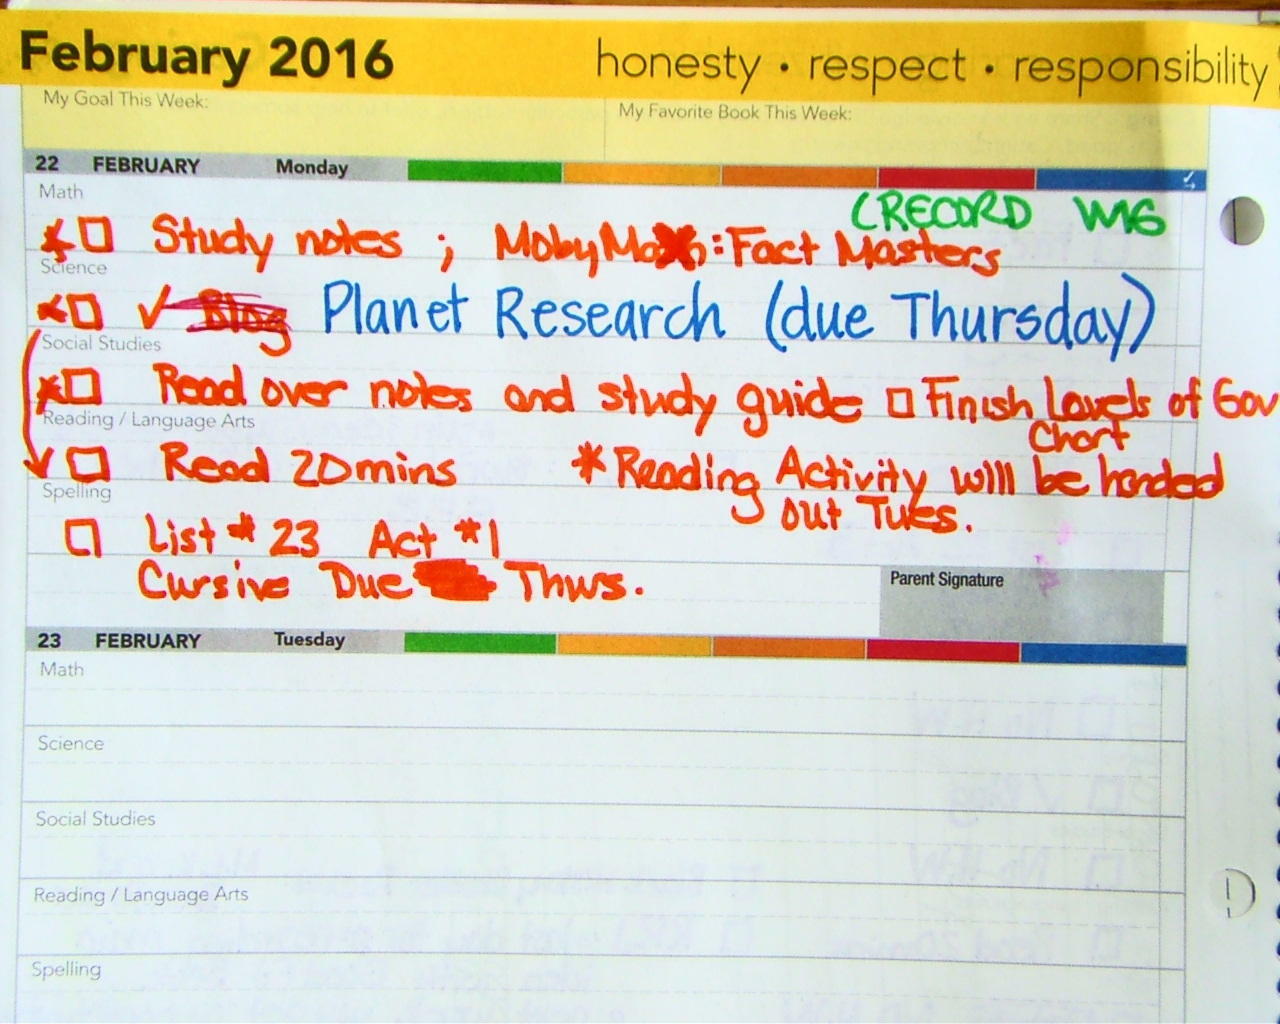 February 2016 honesty • respect • responsibility
My Goal This Week: My Favorite Book This Week:
22 FEBRUARY Monday
Math
(RECORD WIG
Study notes ; MobyMax: Fact Masters
Science
✓ Blog Planet Research (due Thursday)
Social Studies
Read over notes and study guide □ Finish Levels of Gov
Chart
Reading / Language Arts
Read 20mins *Reading Activity will be handed
out Tues.
Spelling
List # 23 Act #1
Cursive Due Thurs.
Parent Signature
23 FEBRUARY Tuesday
Math
Science
Social Studies
Reading / Language Arts
Spelling